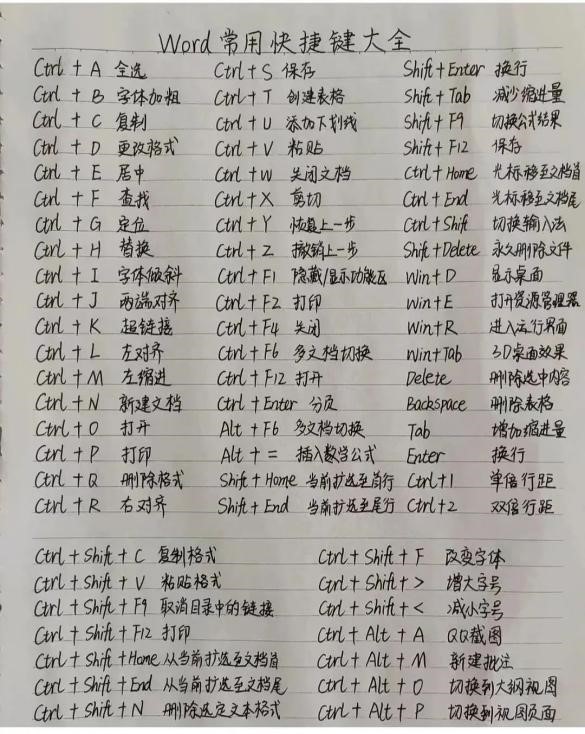 Word常用快捷键大全
Ctrl + A 全选
Ctrl + B 字体加粗
Ctrl + C 复制
Ctrl + D 更改格式
Ctrl + E 居中
Ctrl + F 查找
Ctrl + G 定位
Ctrl + H 替换
Ctrl + I 字体倾斜
Ctrl + J 两端对齐
Ctrl + K 超链接
Ctrl + L 左对齐
Ctrl + M 左缩进
Ctrl + N 新建文档
Ctrl + O 打开
Ctrl + P 打印
Ctrl + Q 删除格式
Ctrl + R 右对齐
Ctrl + S 保存
Ctrl + T 创建表格
Ctrl + U 添加下划线
Ctrl + V 粘贴
Ctrl + W 关闭文档
Ctrl + X 剪切
Ctrl + Y 恢复上一步
Ctrl + Z 撤销上一步
Ctrl + F1 隐藏/显示功能区
Ctrl + F2 打印
Ctrl + F4 关闭
Ctrl + F6 多文档切换
Ctrl + F12 打开
Ctrl + Enter 分页
Alt + F6 多文档切换
Alt + = 插入数学公式
Shift + Home 当前扩选至首行
Shift + End 当前扩选至尾行
Shift + Enter 换行
Shift + Tab 减少缩进量
Shift + F9 切换公式结果
Shift + F12 保存
Ctrl + Home 光标移至文档首
Ctrl + End 光标移至文档尾
Ctrl + Shift 切换输入法
Shift + Delete 永久删除文件
Win + D 显示桌面
Win + E 打开资源管理器
Win + R 进入运行界面
Win + Tab 3D桌面效果
Delete 删除选中内容
Backspace 删除表格
Tab 增加缩进量
Enter 换行
Ctrl + 1 单倍行距
Ctrl + 2 双倍行距
Ctrl + Shift + C 复制格式
Ctrl + Shift + V 粘贴格式
Ctrl + Shift + F9 取消目录中的链接
Ctrl + Shift + F12 打印
Ctrl + Shift + Home 从当前扩选至文档首
Ctrl + Shift + End 从当前扩选至文档尾
Ctrl + Shift + N 删除选定文本格式
Ctrl + Shift + F 改变字体
Ctrl + Shift + > 增大字号
Ctrl + Shift + < 减小字号
Ctrl + Alt + A QQ截图
Ctrl + Alt + M 新建批注
Ctrl + Alt + O 切换到大纲视图
Ctrl + Alt + P 切换到视图页面